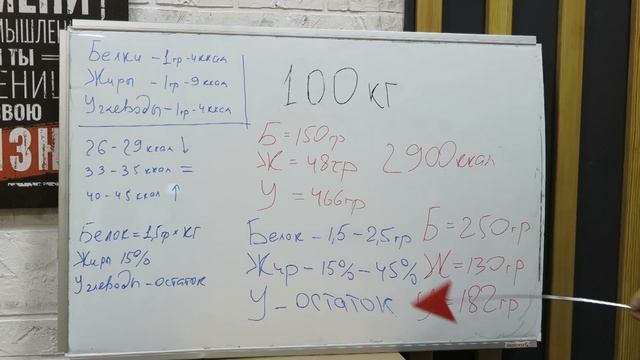 МЫШЛЕН
ТЫ =
СВОЮ
Белки - 1гр - 4 ккал
Жиры - 1гр - 9 ккал
Углеводы - 1гр - 4 ккал
26 - 29 ккал ↓
33 - 35 ккал =
40 - 45 ккал ↑
Белок = 1,5гр × кг
Жиры 15%
Углеводы - остаток
100 кг
Б = 150гр
Ж = 48гр
У = 466гр
2900 ккал
Белок - 1,5 - 2,5гр
Жир - 15% - 45%
У - остаток
Б = 250гр
Ж = 130гр
У = 182гр